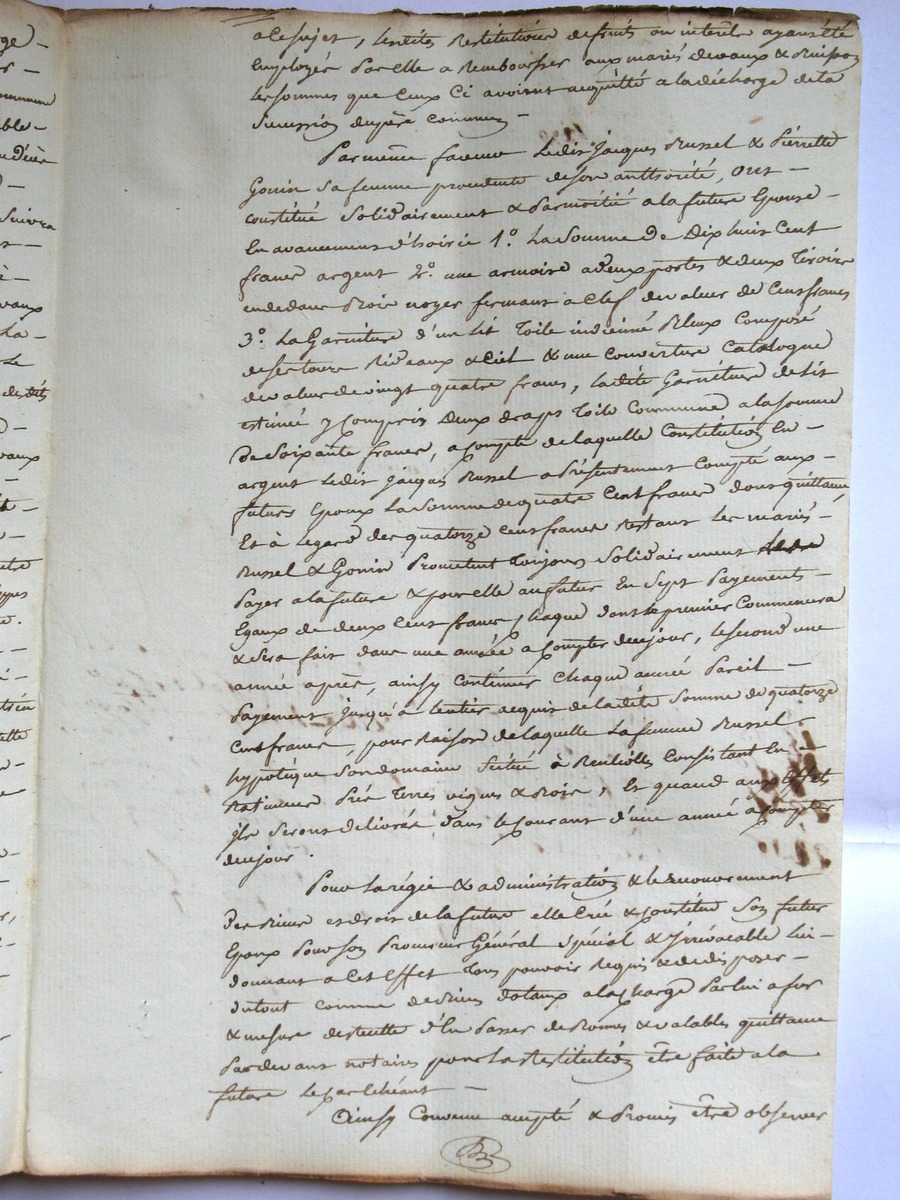 a ce sujet, lesdites Restitutions de fruits ou interets ayant été
employés par elle a Rembourser aux mariés devaux & Buisson
les sommes que ceux ci avoient acquitté a la décharge de la
Sucession du père commun —
Par même faveur ledit jacques Russel & Pierrette
Gonin sa femme procedente de son authorité, ont —
constitué Solidairement & par moitié a la future Epouse —
En avancement d'hoirie 1º. la somme de Dix huit Cent
francs argent 2º. une armoire a deux portes & deux Tiroirs
en dedans Bois noyer fermant a clef de valeur de Cent francs
3º. La Garniture d'un Lit Toile indienne Bleux Composé
de ses tours Rideaux & Ciel & une couverture Catalogne
de valeur de vingt quatre francs, ladite Garniture de Lit
estimée y compris Deux draps Toile Commune a la somme
De Soixante francs, a compte de laquelle Constitution En —
argent ledit jacques Russel a Présentement Compté aux —
futurs Epoux La Somme de quatre Cent francs dont quittance
Et à legard des quatorze cent francs restant les mariés —
Russel & Gonin Promettent Toujours Solidairement
Payer a la future & pour elle au futur En Sept Payements —
Egaux de deux Cent francs chaque dont le premier Commencera
& sera fait dans une année a compter de ce jour, le second une
année après, ainsy continuer chaque année Pareil —
Payement jusqu'à lentier acquis de la dite Somme de quatorze
Cent francs, pour Raison de laquelle La femme Russel
hypotèque Son domaine Scitué à Consistant En —
Batiments Prés Terres vignes & Bois, Et quand aux Effets
ils seront delivrés dans le Courant d'une année à compter
de ce jour.
Pour la régie & administration & le recouvrement
Des Biens et droits de la future elle Crée & constitue Son futur
Epoux Pour son Procureur Général Spécial & Irrévocable lui —
donnant a Cet Effet Tous pouvoir Requis & de disposer —
du tout comme de Biens dotaux a la charge Par lui a fur
& mesure de recette d'En Passer de Bonnes & valables quittance
Par devant notaires pour la Restitution être faite a la
future le cas échéant —
Ainsy Convenu accepté & Promis être observer